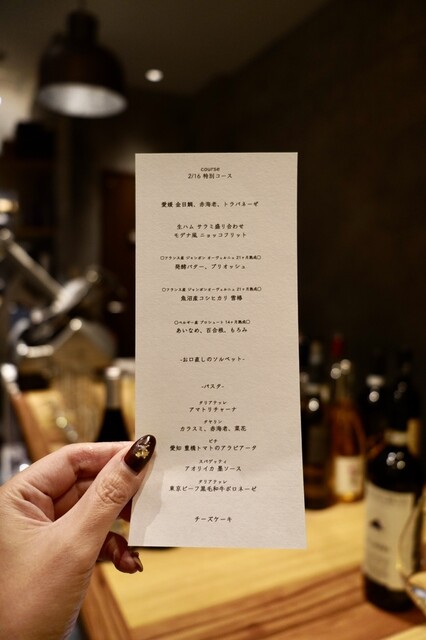 course
2/16 特別コース
愛媛 金目鯛、赤海老、トラパネーゼ
生ハム サラミ盛り合わせ
モデナ風 ニョッコフリット
○フランス産 ジャンボン オーヴェルニュ 21ヶ月熟成○
発酵バター、ブリオッシュ
○フランス産 ジャンボン オーヴェルニュ 21ヶ月熟成○
魚沼産コシヒカリ 雪椿
○ベルギー産 プロシュート 14ヶ月熟成○
あいなめ、百合根、もろみ
-お口直しのソルベット-
-パスタ-
タリアテッレ
アマトリチャーナ
タヤリン
カラスミ、赤海老、菜花
ピチ
愛知 豊橋トマトのアラビアータ
スパゲッティ
アオリイカ 墨ソース
タリアテッレ
東京ビーフ黒毛和牛ボロネーゼ
チーズケーキ